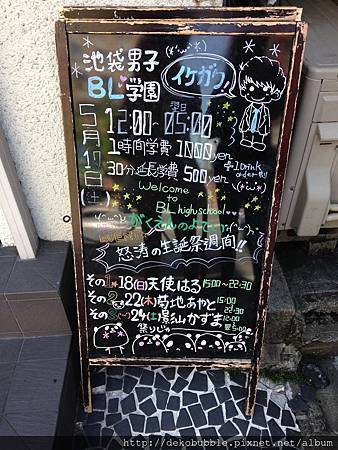 池袋男子
BL♥学園
イケガク!
5月17日(土)
12:00~翌日05:00
1時間学費 1000yen
30分延長学費 500yen
1Drink order制
Welcome to
BL high school
がくえんのよてい
怒涛の生誕祭週間!!
その1 18(日)天使はる 15:00~22:30
その2 22(木)菊地あやと 15:00 22:30
その3 24(土)影山かずま 12:00
祭りじゃ
http://dekobubble.pixnet.net/album